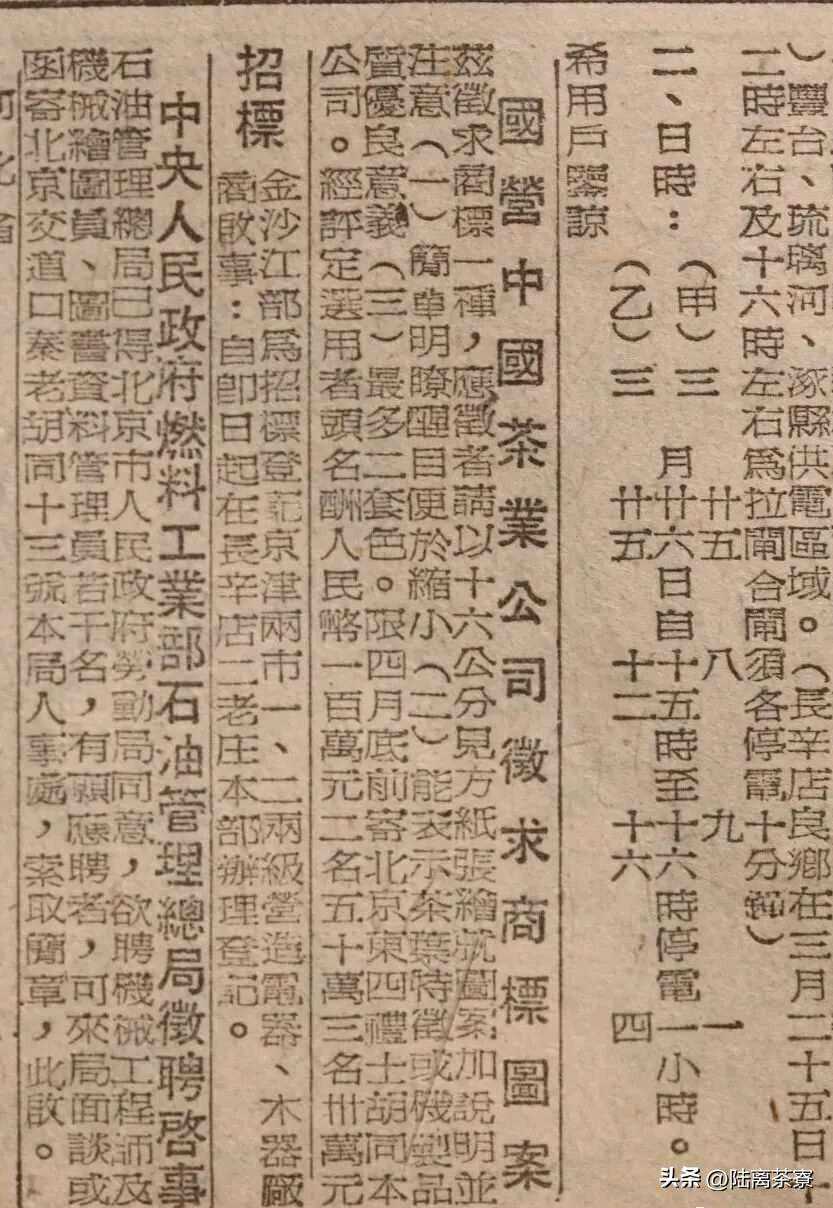 ）豐台、琉璃河、涿縣供電區域。（長辛店良鄉在三月二十五日十
二時左右及十六時左右爲拉閘合閘須各停電十分鐘）
二、日時：（甲）三月廿五 廿六日自八 十五時至九 十六時停電一小時。
（乙）三 廿五 十二 十六 四
希用戶鑒諒
國營中國茶業公司徵求商標圖案
茲徵求商標一種，應徵者請以十六公分見方紙張繪就圖案加說明並
注意（一）簡單明瞭醒目便於縮小（二）能表示茶葉特徵或機製品
質優良意義（三）最多二套色。限四月底前寄北京東四禮士胡同本
公司。經評定選用者頭名酬人民幣一百萬元二名五十萬三名卅萬元
招標
金沙江部爲招標登記京津兩市一、二兩級營造電器、木器廠
商敬事：自卽日起在長辛店二老庄本部辦理登記。
中央人民政府燃料工業部石油管理總局徵聘啓事
石油管理總局已得北京市人民政府勞動局同意，欲聘機械工程師及
機械繪圖員、圖書資料管理員若干名，有願應聘者，可來局面談或
函寄北京交道口秦老胡同十三號本局人事處，索取簡章，此啟。
河北省
头条 @陆离茶寮